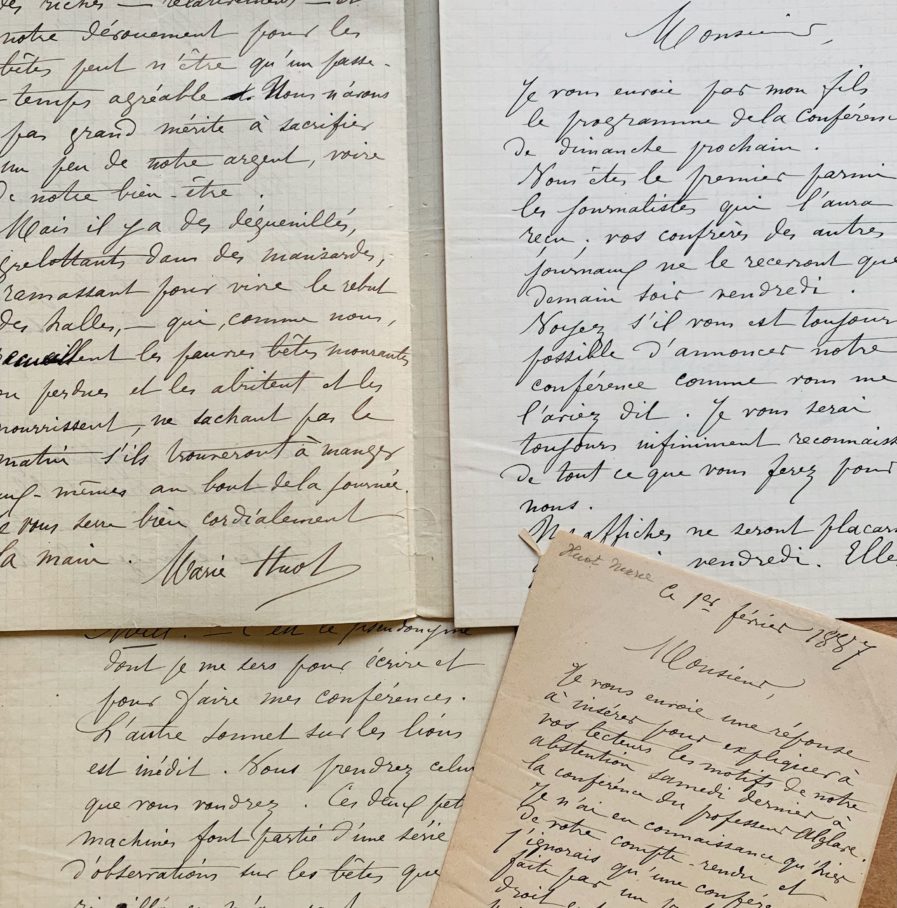 des riches — relativement — et
notre dévouement pour les
bêtes peut n'être qu'un passe-
-temps agréable. Nous n'avons
pas grand mérite à sacrifier
un peu de notre argent, voire
de notre bien-être.
Mais il y a des déguenillés,
grelottants dans des mansardes,
ramassant pour vivre le rebut
des halles, — qui, comme nous,
recueillent les pauvres bêtes mourantes
ou perdues et les abritent et les
nourrissent, ne sachant pas le
matin s'ils trouveront à manger
eux-mêmes au bout de la journée.
Je vous serre bien cordialement
la main.
Marie Huot
Monsieur,
Je vous envoie par mon fils
le programme de la Conférence
de dimanche prochain.
Vous êtes le premier parmi
les journalistes qui l'aura
reçu ; vos confrères des autres
journaux ne le recevront que
demain soir vendredi.
Voyez s'il vous est toujours
possible d'annoncer notre
conférence comme vous me
l'aviez dit. Je vous serai
toujours infiniment reconnaiss
de tout ce que vous ferez pour
nous.
affiches ne seront placar
vendredi. Elle
C'est le pseudonyme
dont je me sers pour écrire et
pour faire mes conférences.
L'autre sonnet sur les lions
est inédit. Vous prendrez celui
que vous voudrez. Ces deux pet
machines font partie d'une série
d'observations sur les bêtes que
Huot Marie
Ce 1er février 1887
Monsieur,
Je vous envoie une réponse
à insérer pour expliquer à
vos lecteurs les motifs de notre
abstention samedi dernier à
la conférence du professeur Alglave.
Je n'ai eu connaissance qu'hier
de votre compte-rendu et
j'ignorais qu'une conférence
faite par un
droit